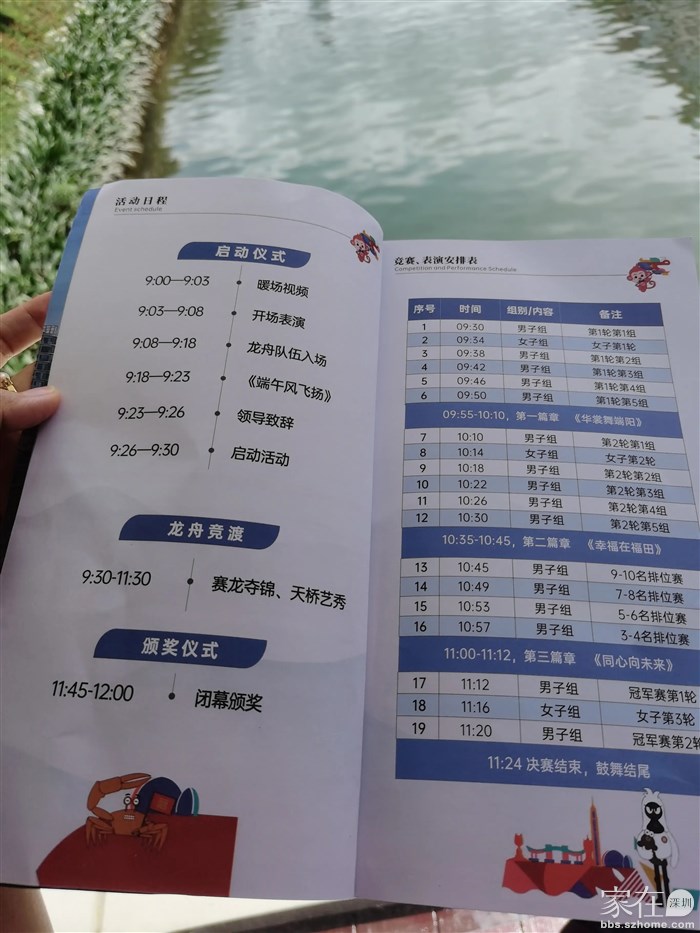 活动日程
Event schedule
启动仪式
9:00—9:03 暖场视频
9:03—9:08 开场表演
9:08—9:18 龙舟队伍入场
9:18—9:23 《端午风飞扬》
9:23—9:26 领导致辞
9:26—9:30 启动活动
龙舟竞渡
9:30-11:30 赛龙夺锦、天桥艺秀
颁奖仪式
11:45-12:00 闭幕颁奖
竞赛、表演安排表
Competition and Performance Schedule
序号 时间 组别/内容 备注
1 09:30 男子组 第1轮第1组
2 09:34 女子组 女子第1轮
3 09:38 男子组 第1轮第2组
4 09:42 男子组 第1轮第3组
5 09:46 男子组 第1轮第4组
6 09:50 男子组 第1轮第5组
09:55-10:10，第一篇章 《华裳舞端阳》
7 10:10 男子组 第2轮第1组
8 10:14 女子组 女子第2轮
9 10:18 男子组 第2轮第2组
10 10:22 男子组 第2轮第3组
11 10:26 男子组 第2轮第4组
12 10:30 男子组 第2轮第5组
10:35-10:45，第二篇章 《幸福在福田》
13 10:45 男子组 9-10名排位赛
14 10:49 男子组 7-8名排位赛
15 10:53 男子组 5-6名排位赛
16 10:57 男子组 3-4名排位赛
11:00-11:12，第三篇章 《同心向未来》
17 11:12 男子组 冠军赛第1轮
18 11:16 女子组 女子第3轮
19 11:20 男子组 冠军赛第2轮
11:24 决赛结束，鼓舞结尾
家在深圳
bbs.szhome.com